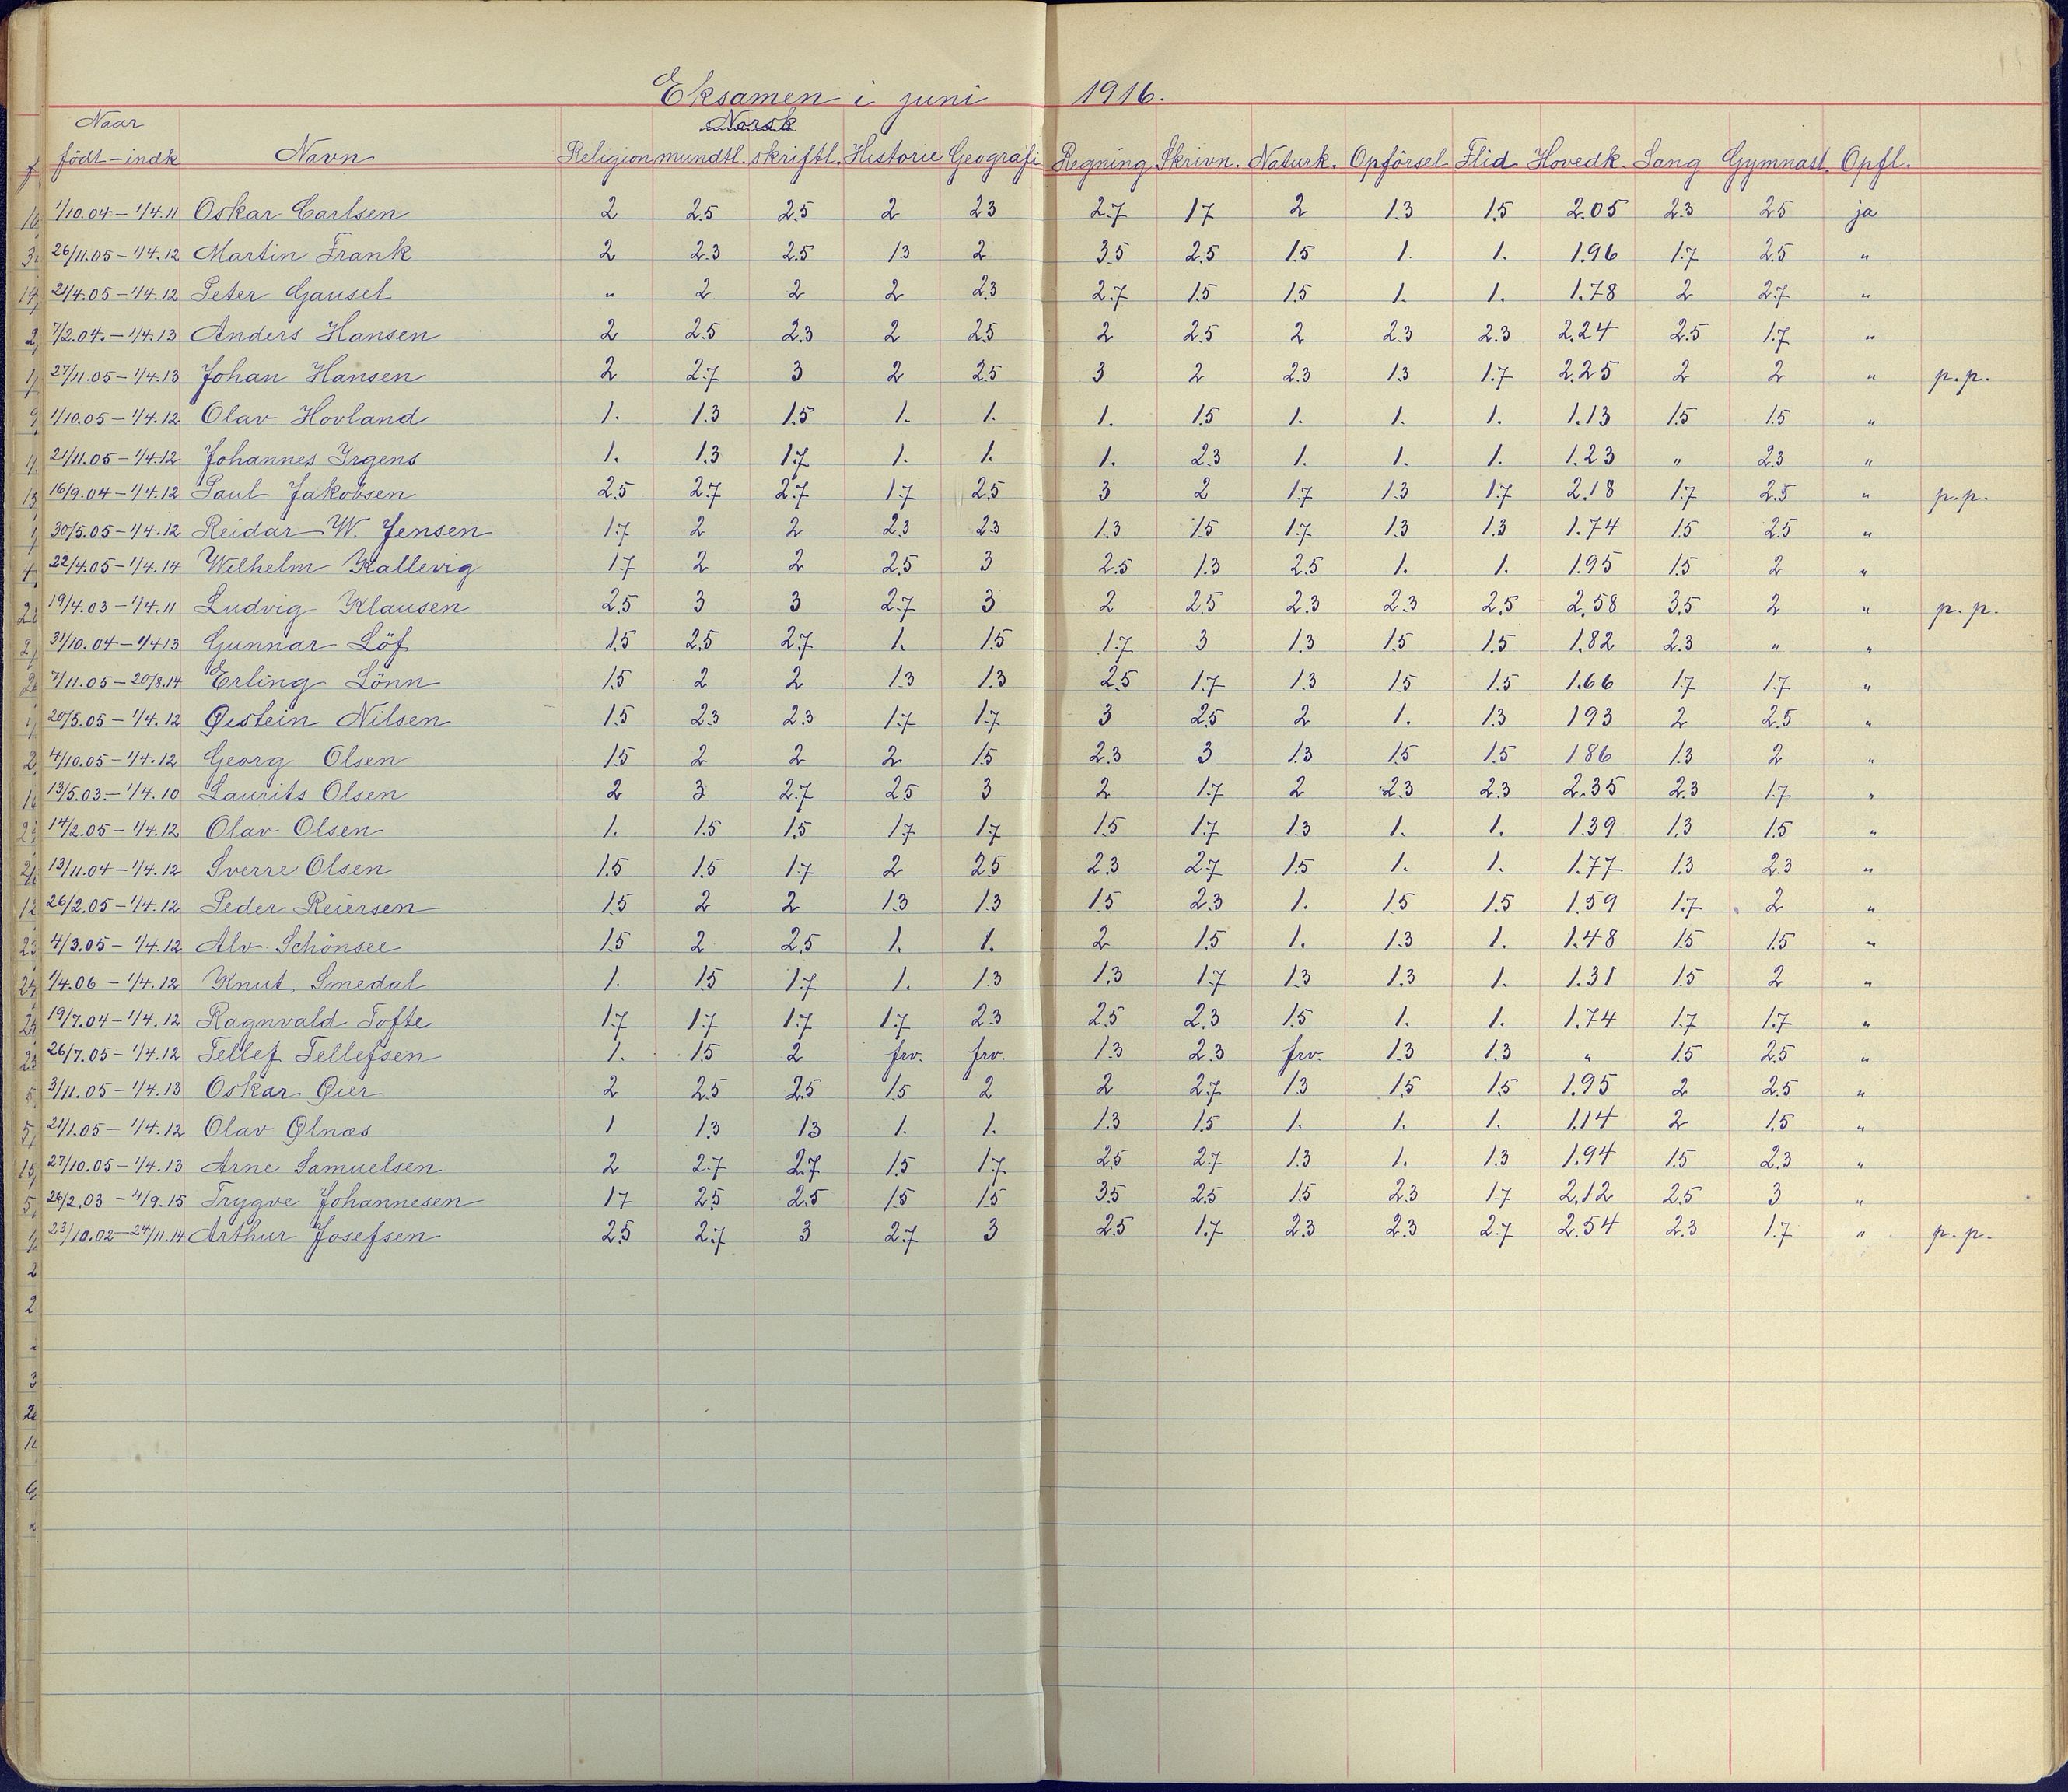 Eksamen i juni 1916.
Naar Norsk
födt - indk Navn Religion mundtl. skriftl. Historie Geografi Regning Skrivn. Naturk. Opförsel Flid Hovedk. Sang Gymnast. Opfl.
1/10.04 - 1/4.11 Oskar Carlsen 2 2.5 2.5 2 2.3 2.7 1.7 2 1.3 1.5 2.05 2.3 2.5 ja
26/11.05 - 1/4.12 Martin Frank 2 2.3 2.5 1.3 2 3.5 2.5 1.5 1. 1. 1.96 1.7 2.5 "
21/4.05 - 1/4.12 Peter Gausel " 2 2 2 2.3 2.7 1.5 1.5 1. 1. 1.78 2 2.7 "
7/2.04. - 1/4.13 Anders Hansen 2 2.5 2.3 2 2.5 2 2.5 2 2.3 2.3 2.24 2.5 1.7 "
27/11.05 - 1/4.13 Johan Hansen 2 2.7 3 2 2.5 3 2 2.3 1.3 1.7 2.25 2 2 " p.p.
1/10.05 - 1/4.12 Olav Hovland 1. 1.3 1.5 1. 1. 1. 1.5 1. 1. 1. 1.13 1.5 1.5 "
21/11.05 - 1/4.12 Johannes Irgens 1. 1.3 1.7 1. 1. 1. 2.3 1. 1. 1. 1.23 " 2.3 "
16/9.04 - 1/4.12 Paul Jakobsen 2.5 2.7 2.7 1.7 2.5 3 2 1.7 1.3 1.7 2.18 1.7 2.5 " p.p.
30/5.05 - 1/4.12 Reidar W. Jensen 1.7 2 2 2.3 2.3 1.3 1.5 1.7 1.3 1.3 1.74 1.5 2.5 "
22/4.05 - 1/4.14 Wilhelm Kallevig 1.7 2 2 2.5 3 2.5 1.3 2.5 1. 1. 1.95 1.5 2 "
19/4.03 - 1/4.11 Ludvig Klausen 2.5 3 3 2.7 3 2 2.5 2.3 2.3 2.5 2.58 3.5 2 " p.p.
31/10.04 - 1/4.13 Gunnar Löf 1.5 2.5 2.7 1. 1.5 1.7 3 1.3 1.5 1.5 1.82 2.3 " "
7/11.05 - 20/8.14 Erling Lönn 1.5 2 2 1.3 1.3 2.5 1.7 1.3 1.5 1.5 1.66 1.7 1.7 "
20/5.05 - 1/4.12 Øistein Nilsen 1.5 2.3 2.3 1.7 1.7 3 2.5 2 1. 1.3 1.93 2 2.5 "
4/10.05 - 1/4.12 Georg Olsen 1.5 2 2 2 1.5 2.3 3 1.3 1.5 1.5 1.86 1.3 2 "
13/5.03. - 1/4.10 Laurits Olsen 2 3 2.7 2.5 3 2 1.7 2 2.3 2.3 2.35 2.3 1.7 "
14/2.05 - 1/4.12 Olav Olsen 1. 1.5 1.5 1.7 1.7 1.5 1.7 1.3 1. 1. 1.39 1.3 1.5 "
13/11.04 - 1/4.12 Sverre Olsen 1.5 1.5 1.7 2 2.5 2.3 2.7 1.5 1. 1. 1.77 1.3 2.3 "
26/2.05 - 1/4.12 Peder Reiersen 1.5 2 2 1.3 1.3 1.5 2.3 1. 1.5 1.5 1.59 1.7 2 "
4/3.05 - 1/4.12 Alv Schönsee 1.5 2 2.5 1. 1. 2 1.5 1. 1.3 1. 1.48 1.5 1.5 "
1/4.06 - 1/4.12 Knut Smedal 1. 1.5 1.7 1. 1.3 1.3 1.7 1.3 1.3 1. 1.31 1.5 2 "
19/7.04 - 1/4.12 Ragnvald Tofte 1.7 1.7 1.7 1.7 2.3 2.5 2.3 1.5 1. 1. 1.74 1.7 1.7 "
26/7.05 - 1/4.12 Tellef Tellefsen 1. 1.5 2 frv. frv. 1.3 2.3 frv. 1.3 1.3 " 1.5 2.5 "
3/11.05 - 1/4.13 Oskar Øier 2 2.5 2.5 1.5 2 2 2.7 1.3 1.5 1.5 1.95 2 2.5 "
21/1.05 - 1/4.12 Olav Ølnæs 1 1.3 1.3 1. 1. 1.3 1.5 1. 1. 1. 1.14 2 1.5 "
27/10.05 - 1/4.13 Arne Samuelsen 2 2.7 2.7 1.5 1.7 2.5 2.7 1.3 1. 1.3 1.94 1.5 2.3 "
26/2.03 - 4/9.15 Trygve Johannesen 1.7 2.5 2.5 1.5 1.5 3.5 2.5 1.5 2.3 1.7 2.12 2.5 3 "
23/10.02 - 24/11.14 Arthur Josefsen 2.5 2.7 3 2.7 3 2.5 1.7 2.3 2.3 2.7 2.54 2.3 1.7 " p.p.